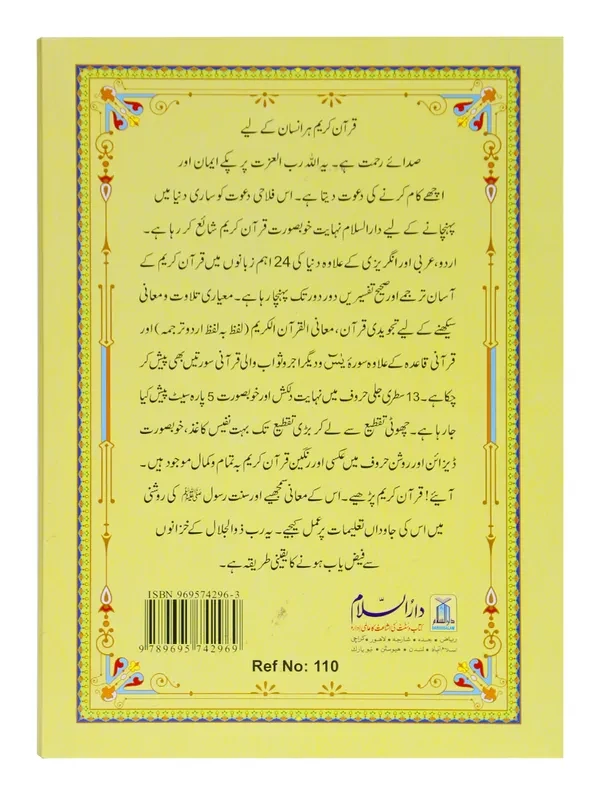 قرآن کریم ہر انسان کے لیے
صدائے رحمت ہے۔ یہ اللہ رب العزت پر پکے ایمان اور
اچھے کام کرنے کی دعوت دیتا ہے۔ اس فلاحی دعوت کو ساری دنیا میں
پہنچانے کے لیے دارالسلام نہایت خوبصورت قرآن کریم شائع کر رہا ہے۔
اردو، عربی اور انگریزی کے علاوہ دنیا کی 24 اہم زبانوں میں قرآن کریم کے
آسان ترجمے اور صحیح تفسیریں دور دور تک پہنچا رہا ہے۔ معیاری تلاوت و معانی
سیکھنے کے لیے تجویدی قرآن، معانی القرآن الکریم (لفظ بہ لفظ اردو ترجمہ) اور
قرآنی قاعدہ کے علاوہ سورۂ یٰسٓ و دیگر اجر و ثواب والی قرآنی سورتیں بھی پیش کر
چکا ہے۔ 13 سطری جلی حروف میں نہایت دلکش اور خوبصورت 5 پارہ سیٹ پیش کیا
جا رہا ہے۔ چھوٹی تقطیع سے لے کر بڑی تقطیع تک بہت نفیس کاغذ، خوبصورت
ڈیزائن اور روشن حروف میں عکسی اور رنگین قرآن کریم بہ تمام و کمال موجود ہیں۔
آیئے! قرآن کریم پڑھیے۔ اس کے معانی سمجھیے اور سنت رسول ﷺ کی روشنی
میں اس کی جاوداں تعلیمات پر عمل کیجیے۔ یہ رب ذوالجلال کے خزانوں
سے فیض یاب ہونے کا یقینی طریقہ ہے۔
ISBN 969574296-3
9 789695 742969
Ref No: 110
دارالسلام
کتاب و سنت کی اشاعت کا عالمی ادارہ
ریاض • جدہ • شارجہ • لاہور • کراچی
اسلام آباد • لندن • ہیوسٹن • نیویارک
دارالسلام